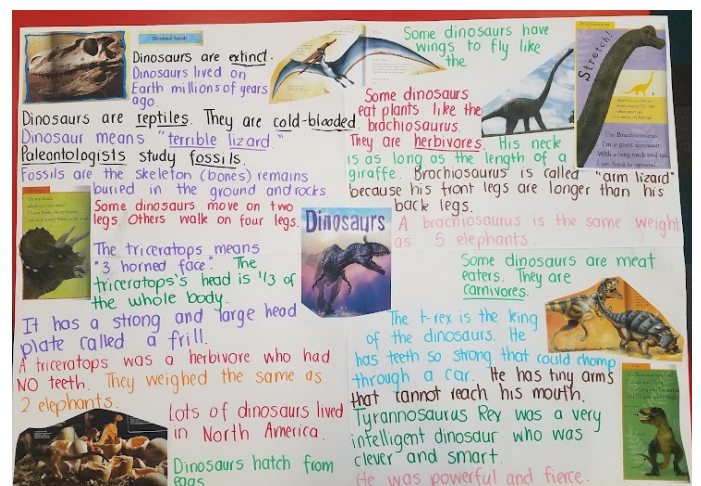 Dinosaurs are extinct.
Dinosaurs lived on
Earth millions of years
ago.
Dinosaurs are reptiles. They are cold-blooded.
Dinosaur means "terrible lizard."
Paleontologists study fossils.
Fossils are the skeleton (bones) remains
buried in the ground and rocks.
Some dinosaurs move on two
legs. Others walk on four legs.
The triceratops means
"3 horned face". The
triceratops's head is 1/3 of
the whole body.
It has a strong and large head
plate called a frill.
A triceratops was a herbivore who had
NO teeth. They weighed the same as
2 elephants.
Lots of dinosaurs lived
in North America.
Dinosaurs hatch from
eggs
Dinosaurs
Some dinosaurs have
wings to fly like
the
Some dinosaurs
eat plants like the
brachiosaurus.
They are herbivores. His neck
is as long as the length of a
giraffe. Brachiosaurus is called "arm lizard"
because his front legs are longer than his
back legs.
A brachiosaurus is the same weight
as 5 elephants.
Stretch!
I'm Brachiosaurus.
I'm a giant dinosaur.
With a long neck and tail
Some dinosaurs are meat
eaters. They are
carnivores.
The t-rex is the king
of the dinosaurs. He
has teeth so strong that could chomp
through a car. He has tiny arms
that cannot reach his mouth.
Tyrannosaurus Rex was a very
intelligent dinosaur who was
clever and smart.
He was powerful and fierce.